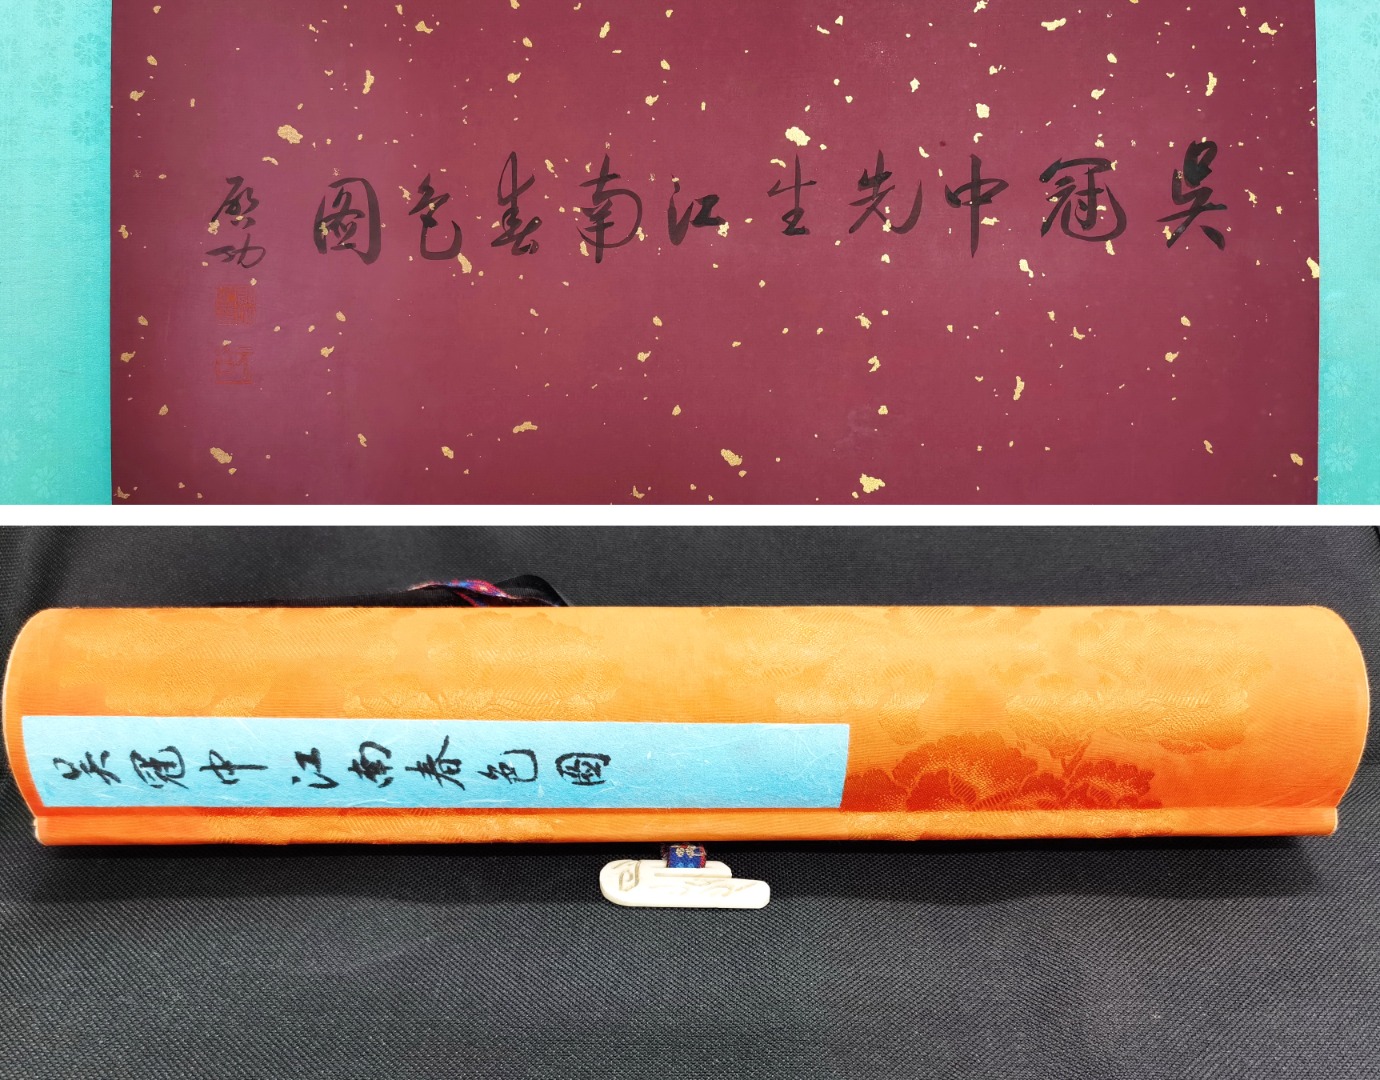 吳冠中先生江南春色图
啟功
吴冠中江南春色图